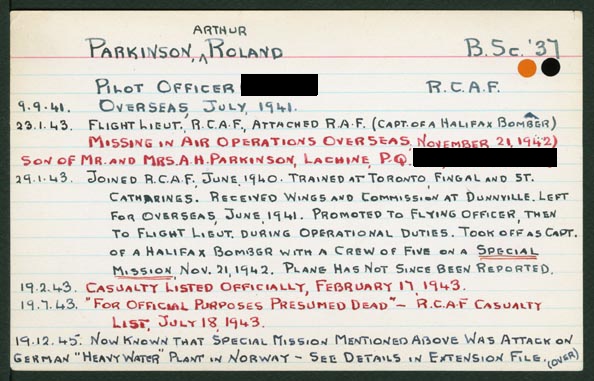 ARTHUR
PARKINSON, ^ ROLAND B.Sc. '37
PILOT OFFICER R.C.A.F.
9.9.41. OVERSEAS, JULY, 1941.
23.1.43. FLIGHT LIEUT., R.C.A.F., ATTACHED R.A.F. (CAPT. OF A HALIFAX BOMBER)
MISSING IN AIR OPERATIONS OVERSEAS, NOVEMBER 21, 1942)
SON OF MR. AND MRS. A.H. PARKINSON, LACHINE, P.Q.
29.1.43. JOINED R.C.A.F., JUNE, 1940. TRAINED AT TORONTO, FINGAL AND ST.
CATHARINGS. RECEIVED WINGS AND COMMISSION AT DUNNVILLE. LEFT
FOR OVERSEAS, JUNE, 1941. PROMOTED TO FLYING OFFICER, THEN
TO FLIGHT LIEUT. DURING OPERATIONAL DUTIES. TOOK OFF AS CAPT.
OF A HALIFAX BOMBER WITH A CREW OF FIVE ON A SPECIAL
MISSION, NOV. 21, 1942. PLANE HAS NOT SINCE BEEN REPORTED.
19.2.43. CASUALTY LISTED OFFICIALLY, FEBRUARY 17, 1943.
19.7.43. "FOR OFFICIAL PURPOSES PRESUMED DEAD" - R.C.A.F CASUALTY
LIST, JULY 18, 1943.
19.12.45. NOW KNOWN THAT SPECIAL MISSION MENTIONED ABOVE WAS ATTACK ON
GERMAN "HEAVY WATER" PLANT IN NORWAY - SEE DETAILS IN EXTENSION FILE. (OVER)